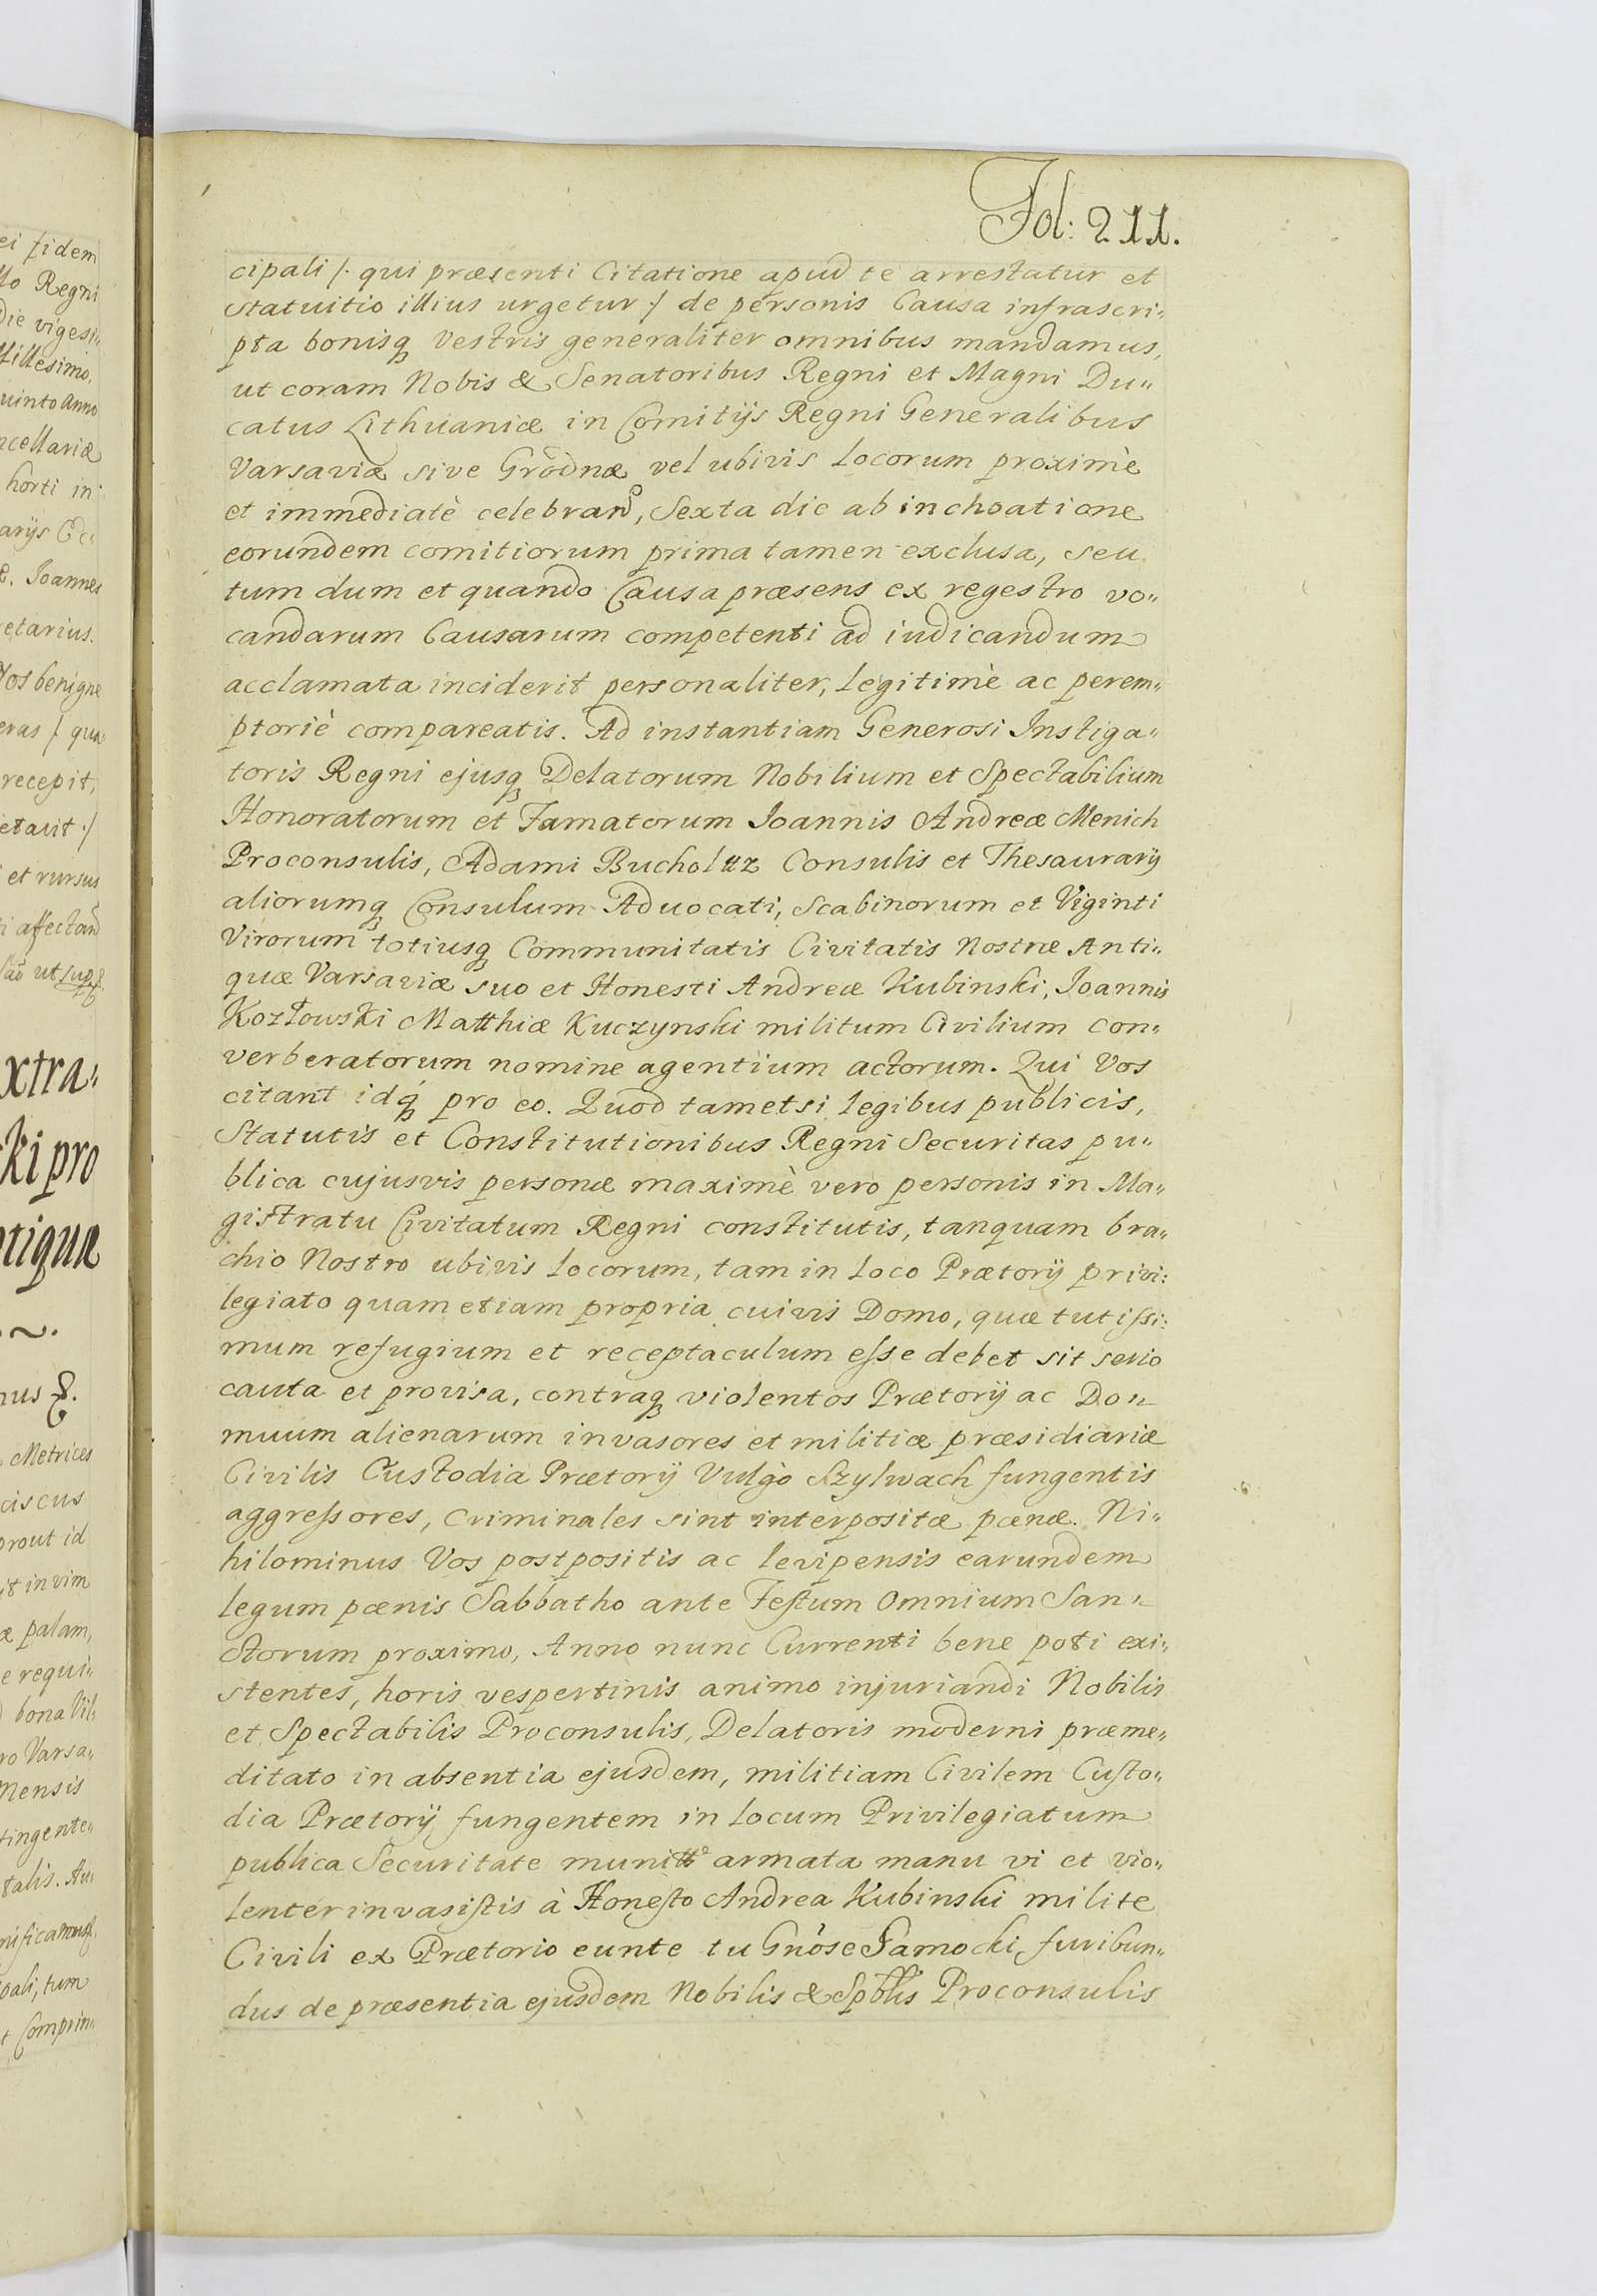 ei fidem
Regni
die vigesi„
Millesimo.
uinto Anno
ncellariæ
horti in
Joannes
etarius.
Vos benigne
eras /. qua
recepit,
etavit ./
et rursus
affectand
ut
xtra„
ki pro
ntiquæ
nus
Metrices
ciscus
prout id
it in vim
æ palam,
e requi„
bona Vil„
ro Varsa„
mensis
tingente„
talis. Au„
nificamus
pali, tum
t Comprin„
Fol: 211.
cipali /. qui præsenti Citatione apud te arrestatur et
statuitio illius urgetur ./ de personis Causa infrascri„
pta bonisq Vestris generaliter omnibus mandamus,
ut coram Nobis & Senatoribus Regni et Magni Du„
catus Lithuaniæ in Comitijs Regni Generalibus
Varsaviæ sive Grodnæ vel ubivis locorum proximè
et immediatè celebrand, Sexta die ab inchoatione
eorundem comitiorum prima tamen exclusa, seu
tum dum et quando Causa præsens ex regestro vo„
candarum Causarum competenti ad iudicandum
acclamata inciderit personaliter, legitimè ac perem„
ptoriè compareatis. Ad instantiam Generosi Instiga„
toris Regni ejusq Delatorum Nobilium et Spectabilium
Honoratorum et Famatorum Joannis Andreæ Menich
Proconsulis, Adami Bucholtz Consulis et Thesaurarij
aliorumq Consulum Aduocati, Scabinorum et Viginti
Virorum totiusq Communitatis Civitatis Nostræ Anti„
quæ Varsaviæ suo et Honesti Andreæ Kubinski, Joannis
Kozłowski Matthiæ Kuczynski militum Civilium con„
verberatorum nomine agentium actorum. Qui Vos
citant idq pro eo. Quod tametsi legibus publicis,
Statutis et Constitutionibus Regni Securitas pu„
blica cujusvis personæ maximè vero personis in Ma„
gistratu Civitatum Regni constitutis, tanquam bra„
chio Nostro ubivis locorum, tam in loco Prætorij privi„
legiato quam etiam propria cuivis Domo, quæ tutissi„
mum refugium et receptaculum esse debet sit serio
cauta et provisa, contraq violentos Prætorij ac Do„
muum alienarum invasores et militiæ præsidiariæ
Civilis Custodia Prætorij Vulgò Szylwach fungentis
aggressores, Criminales sint interpositæ pœnæ. Ni„
hilominus Vos postpositis ac levipensis earundem
legum pœnis Sabbatho ante Festum Omnium San„
ctorum proximo, Anno nunc Currenti bene poti exi„
stentes, horis vespertinis animo injuriandi Nobilis
et Spectabilis Proconsulis, Delatoris moderni præme„
ditato in absentia ejusdem, militiam Civilem Custo„
dia Prætorij fungentem in locum Privilegiatum
publica Securitate armata manu vi et vio„
lenter invasistis à Honesto Andrea Kubinski milite
Civili ex Prætorio eunte tu Gnose Samocki furibun„
dus de præsentia ejusdem Nobilis & Spblis Proconsulis